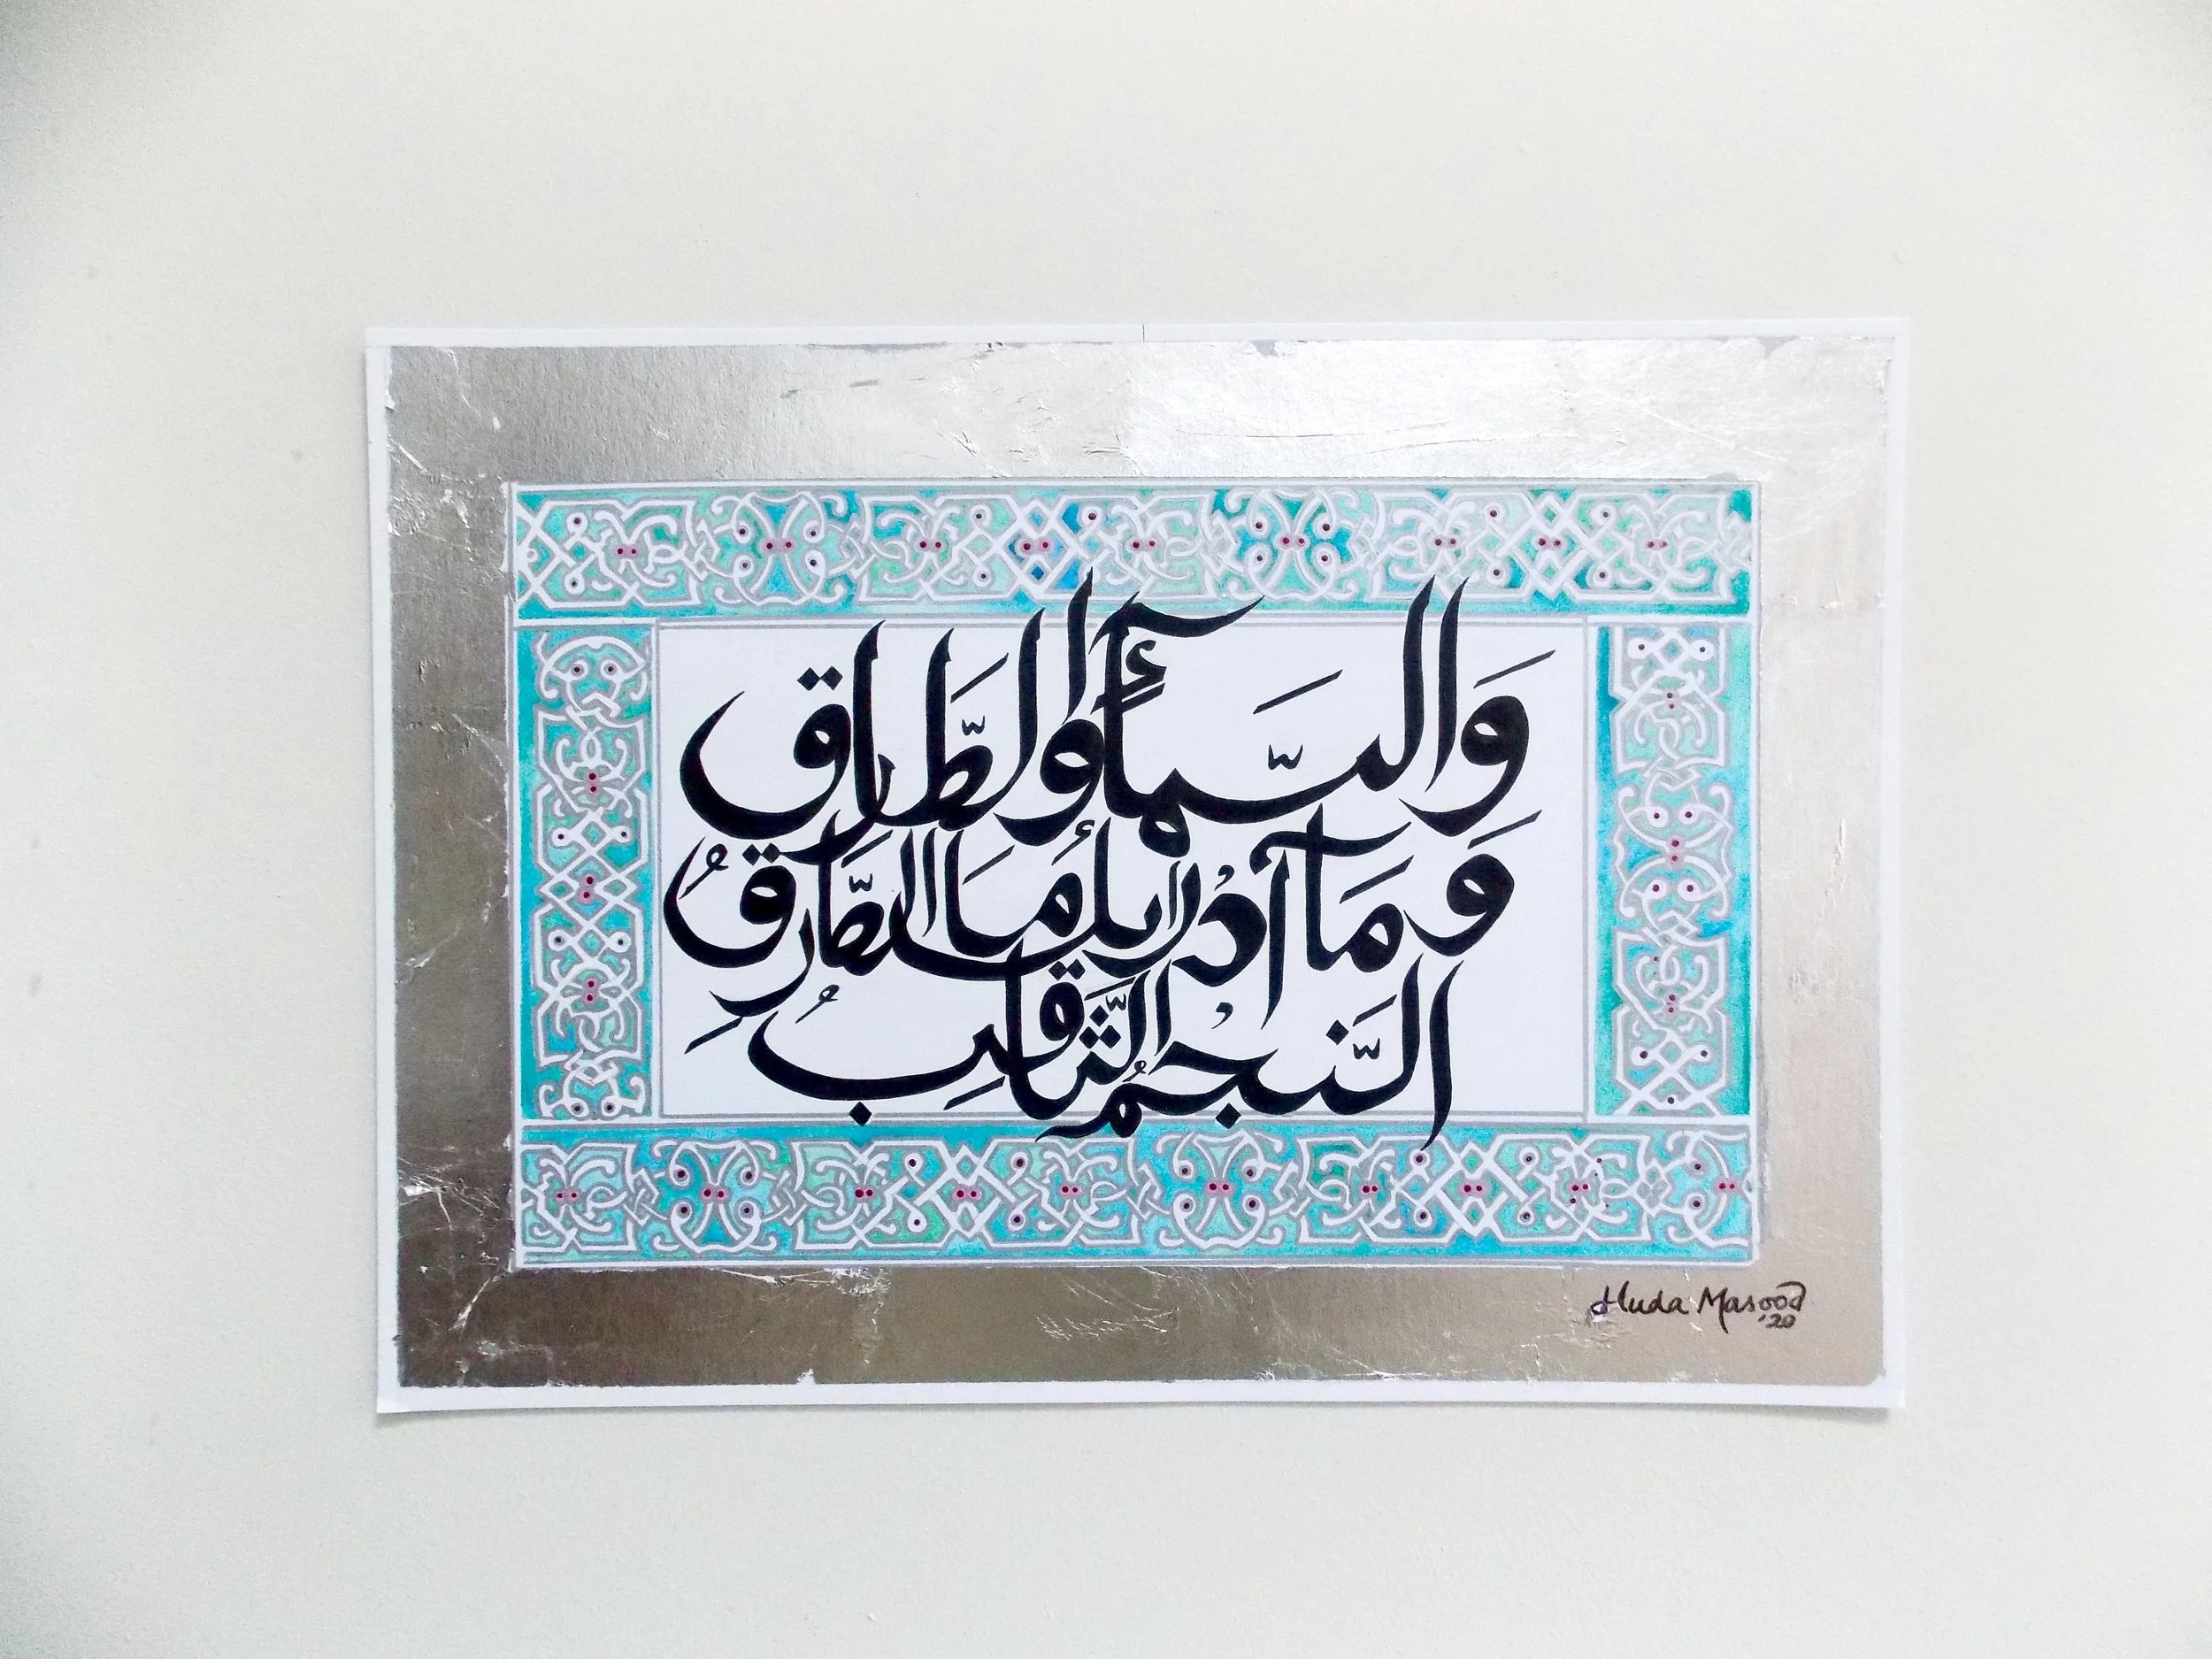 وَالسَّمَآءِ وَالطَّارِق
وَمَآ اَدْرٰىكَ مَا الطَّارِقُ
النَّجْمُ الثَّاقِبُ
Huda Masood
'20